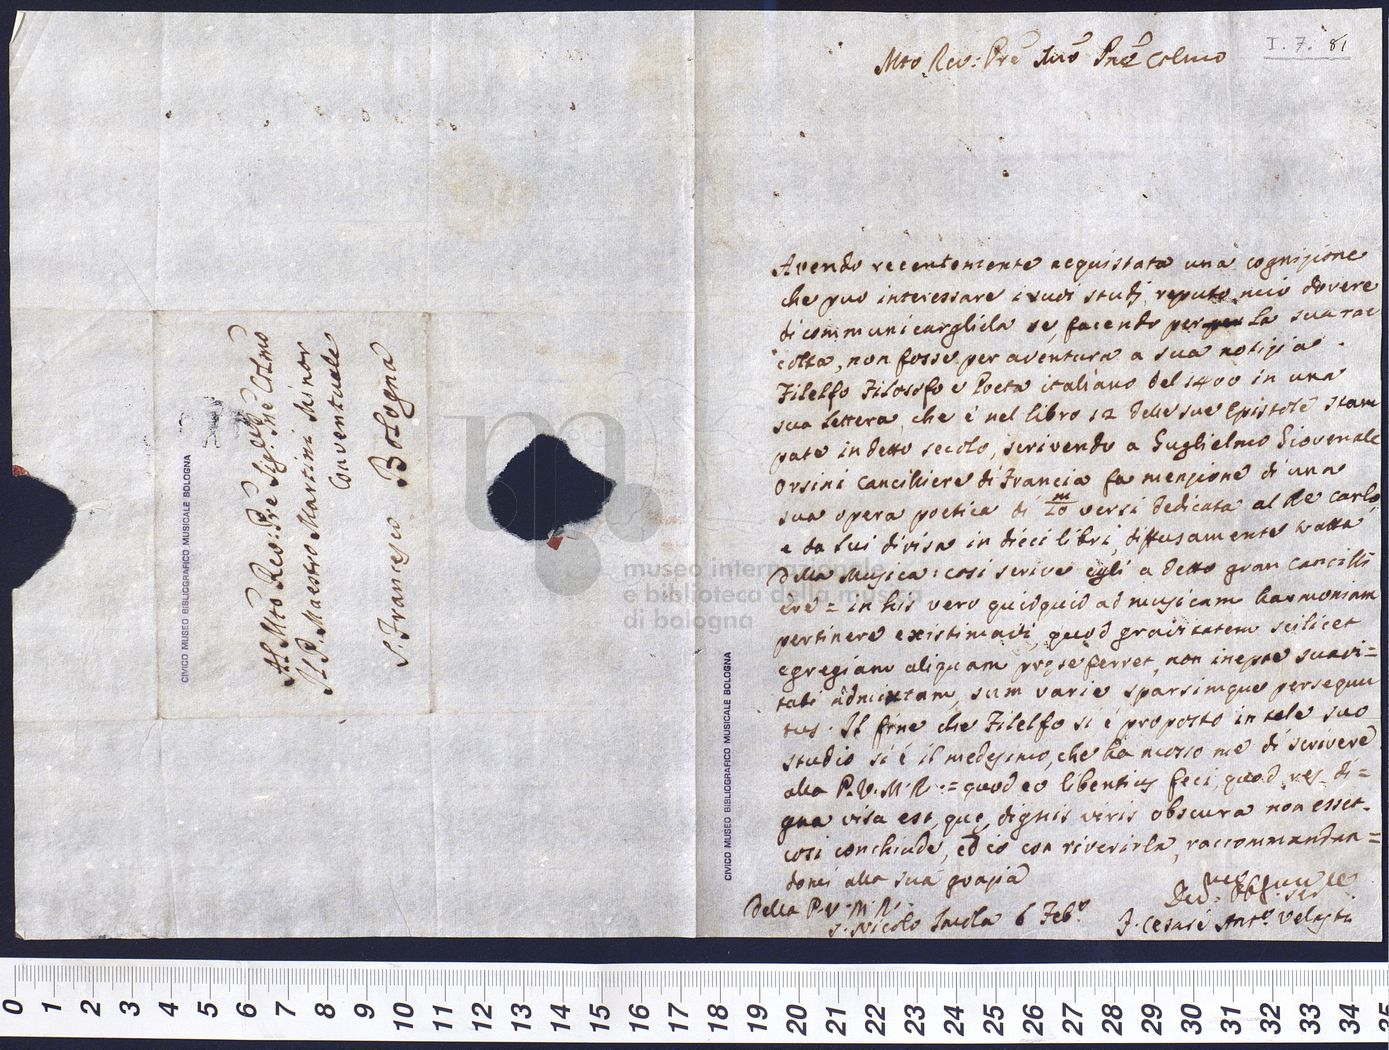 I. 7. 81
Mto Rev: Pre Sig.r Pne Colmo
Avendo recentemente acquistata una cognizione
che può interessare i suoi studj, reputo mio dovere
di communicargliela se, facendo per la sua rac
colta, non fosse per aventura a sua notizia.
Filelfo Filosofo e Poeta italiano del 1400 in una
sua lettera, che è nel libro 12 delle sue Epistole stam
pate in detto secolo, scrivendo a Guglielmo Giovenale
Orsini Cancilliere di Francia fa menzione di una
sua opera poetica di 20/m versi dedicata al Re Carlo,
e da lui divisa in dieci libri, diffusamente tratta
della Musica: così scrive egli a detto gran Cancilli
ere = in his vero quidquid ad musicam harmoniam
pertinere existimavi, quod gravitatem scilicet
egregiam aliquam præ se ferret, non inepte suavi=
tati admixtam, sum varie sparsimque persequu
tus. Il fine che Filelfo si è proposto in tale suo
studio si è il medesimo, che ha mosso me di scrivere
alla P.V.M.R. = quod eo libentius feci, quod res di=
gna visa est, quę dignis viris obscura non esset.
così conchiude, ed io con riverirla, raccommandan=
domi alla sua grazia
Della P.V.M.R.
S. Nicolo Imola 6 Feb.o
F. Cesare Ant.o Velasti
Al Mto Rev: Pre Sig.r Pne Colmo
Il P. Maestro Martini Minor
Conventuale
S. Francesco Bologna
CIVICO MUSEO BIBLIOGRAFICO MUSICALE BOLOGNA
CIVICO MUSEO BIBLIOGRAFICO MUSICALE BOLOGNA
museo internazionale
e biblioteca della musica
di bologna
0 1 2 3 4 5 6 7 8 9 10 11 12 13 14 15 16 17 18 19 20 21 22 23 24 25 26 27 28 29 30 31 32 33 34 35